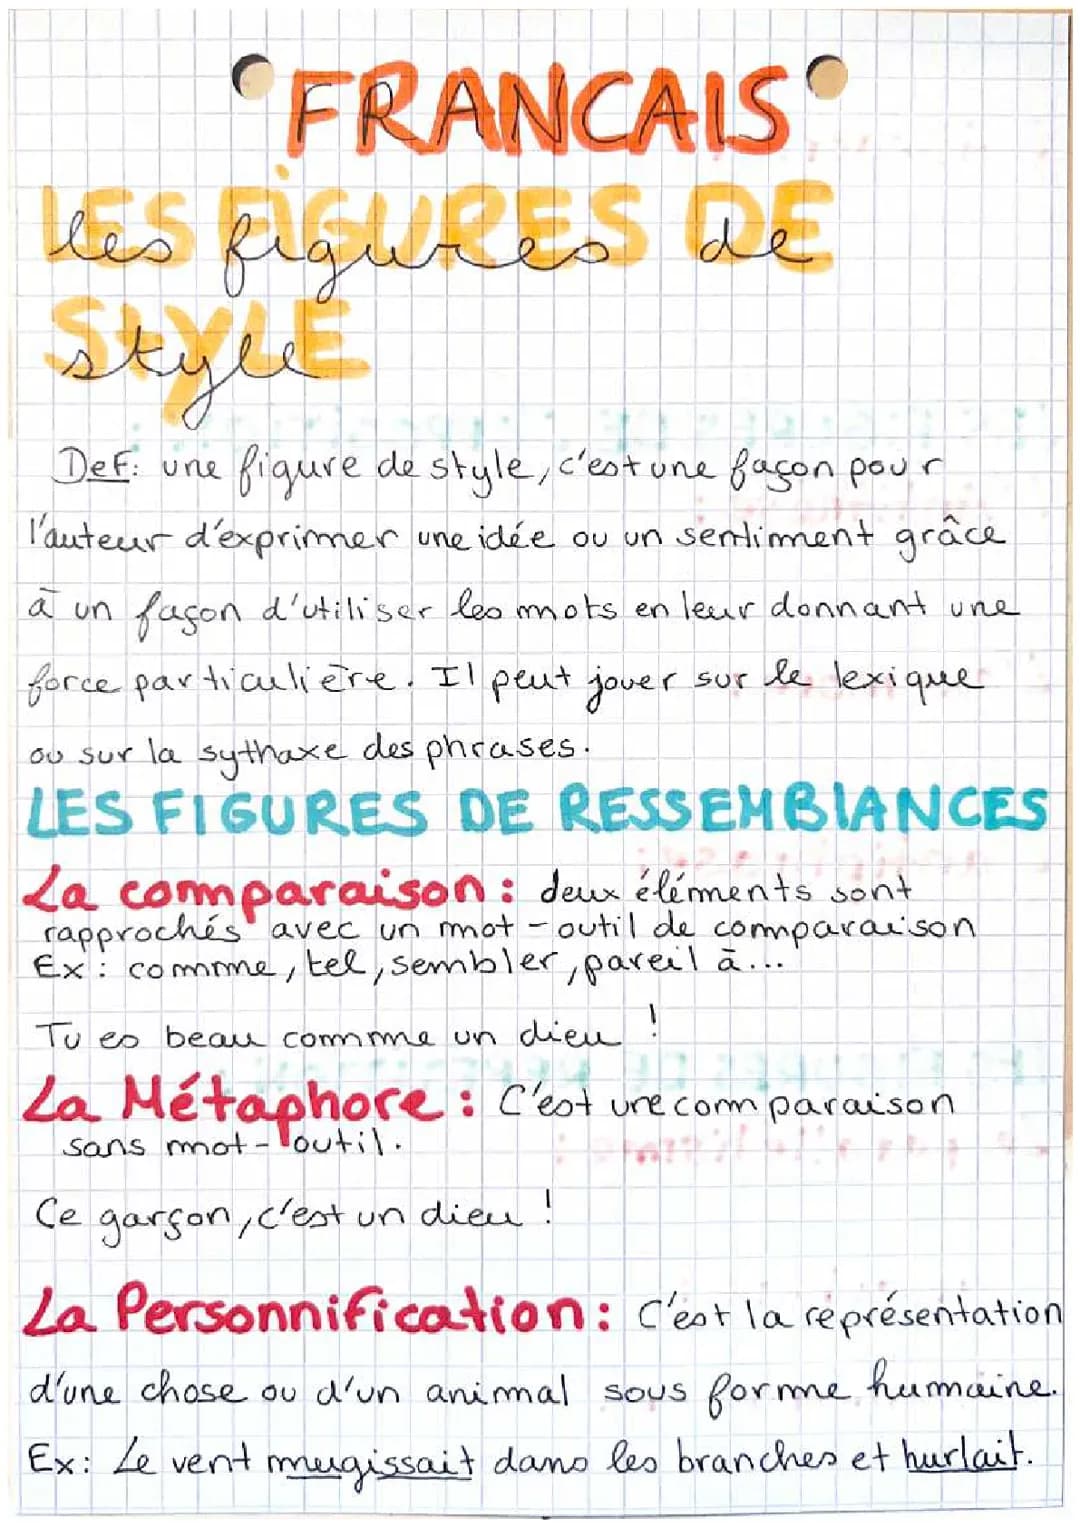 FRANCAIS
LES FIGURES DE
les figures de
STYLE
style
Def: une figure de style, c'est une façon pour
l'auteur d'exprimer une idée ou un sentiment grâce
à un façon d'utiliser les mots en leur donnant une
force particulière. Il peut jouer sur le lexique
ou sur la sythaxe des phrases.
LES FIGURES DE RESSEMBLANCES
La comparaison : deux éléments sont
rapprochés avec un mot-outil de comparaison
Ex : comme, tel, sembler, pareil à...
Tu es beau comme un dieu !
La Métaphore : C'est une comparaison
sans mot-outil.
Ce garçon, c'est un dieu !
La Personnification : C'est la représentation
d'une chose ou d'un animal sous forme humaine.
Ex: Le vent mugissait dans les branches et hurlait.